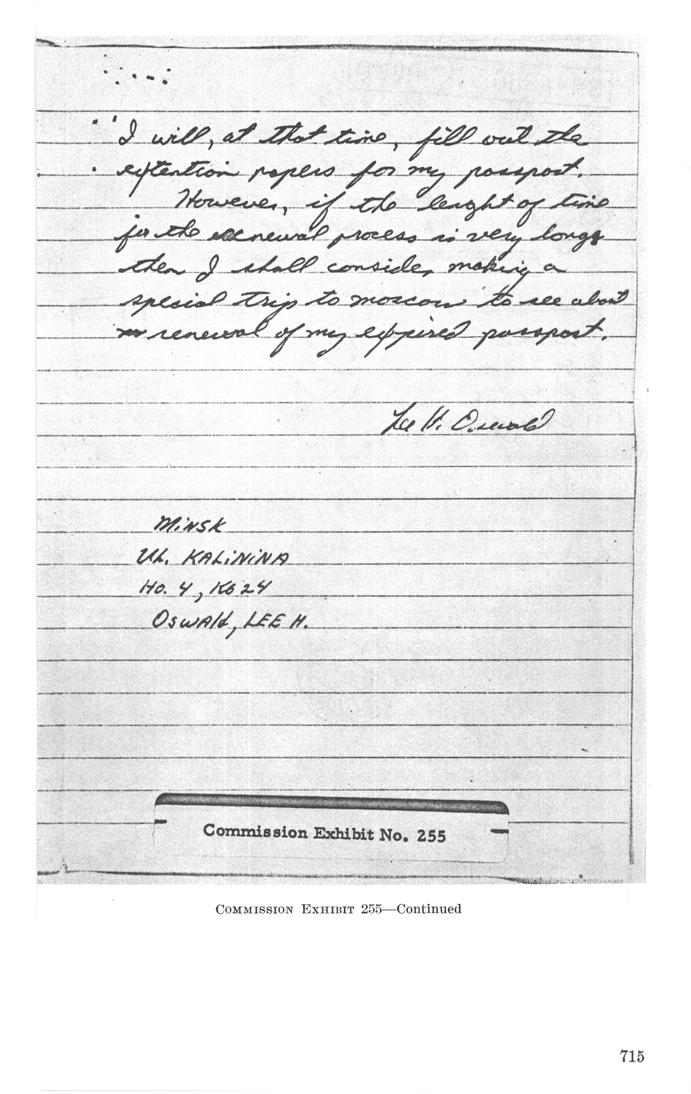 I will, at that time, fill out the
extention papers for my passpost.
However, if the lenght of time
for the renewal process is very long
then I shall consider making a
special trip to moscow to see about
renewal of my expired passpost.
Lee H. Oswald
MiNSK
UL. KALiNiNA
Ho. 4, K6 24
OSWAld, LEE H.
Commission Exhibit No. 255
COMMISSION EXHIBIT 255—Continued
715